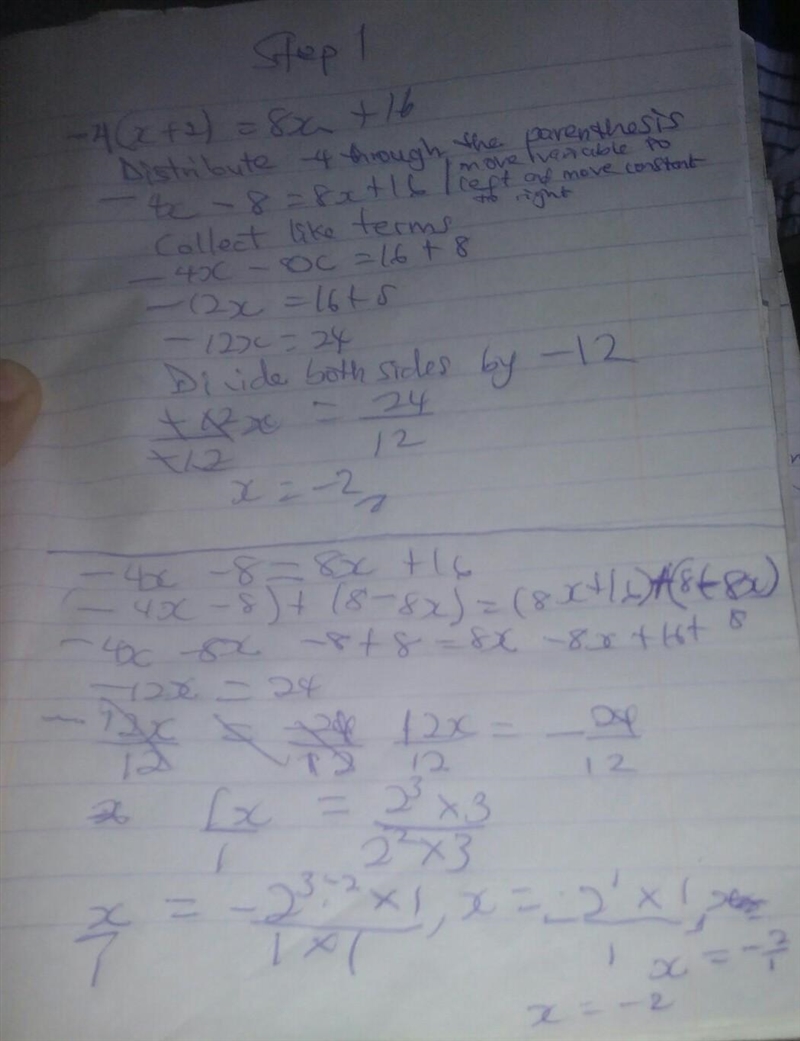 Step 1
-4(x+2) = 8x + 16
Distribute -4 through the parenthesis
-4x - 8 = 8x + 16 / move variable to left and move constant to right
Collect like terms
-4x - 8x = 16 + 8
-12x = 16 + 8
-12x = 24
Divide both sides by -12
-12x/-12 = 24/12
x = -2
-4x - 8 = 8x + 16
(-4x - 8) + (8 - 8x) = (8x + 16) + (8 - 8x)
-4x - 8x - 8 + 8 = 8x - 8x + 16 + 8
-12x = 24
-12x/12 = -24/12 12x/12 = -24/12
x 1x/1 = 2³ × 3/2² × 3
x/1 = -2³⁻² × 1/1 × 1, x = -2¹ × 1/1,
x = -2/1
x = -2